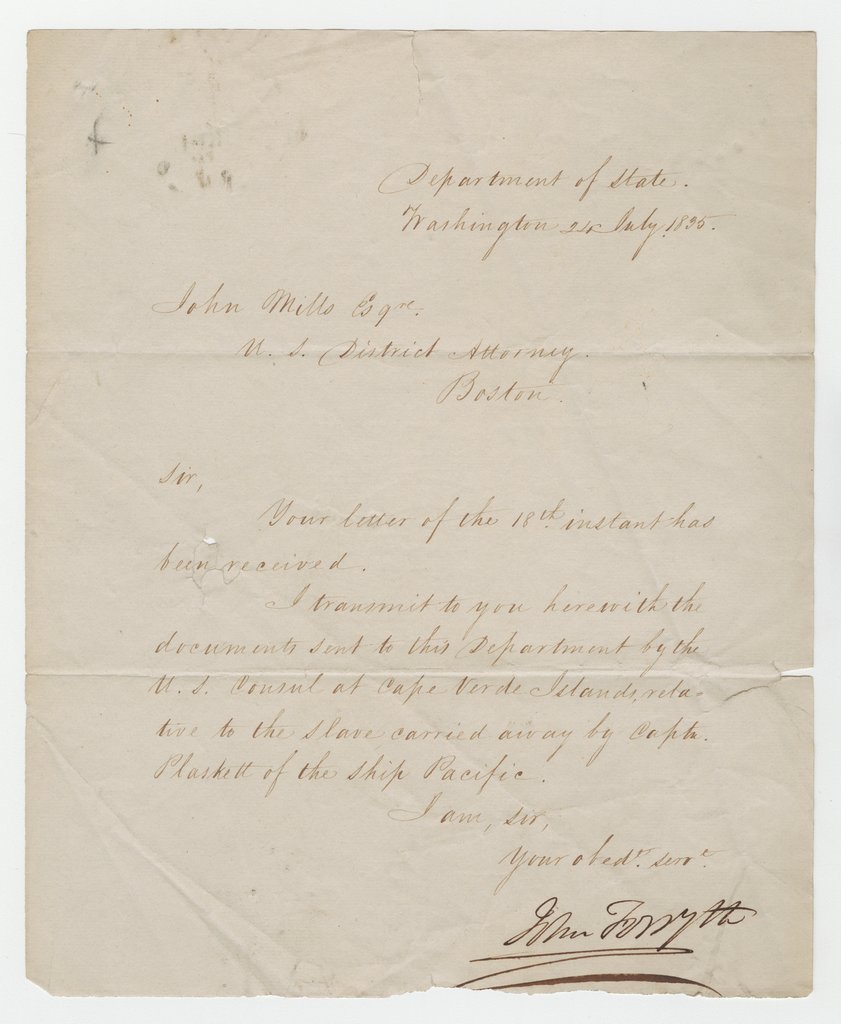 Department of State.
Washington 24 July, 1835.
John Mills Esqre.
U. S. District Attorney.
Boston.
Sir,
Your letter of the 18th. instant has
been received.
I transmit to you herewith the
documents sent to this Department by the
U. S. Consul at Cape Verde Islands, rela-
tive to the slave carried away by Captn.
Plaskett of the ship Pacific.
I am, sir,
Your obedt. servt.
John Forsyth